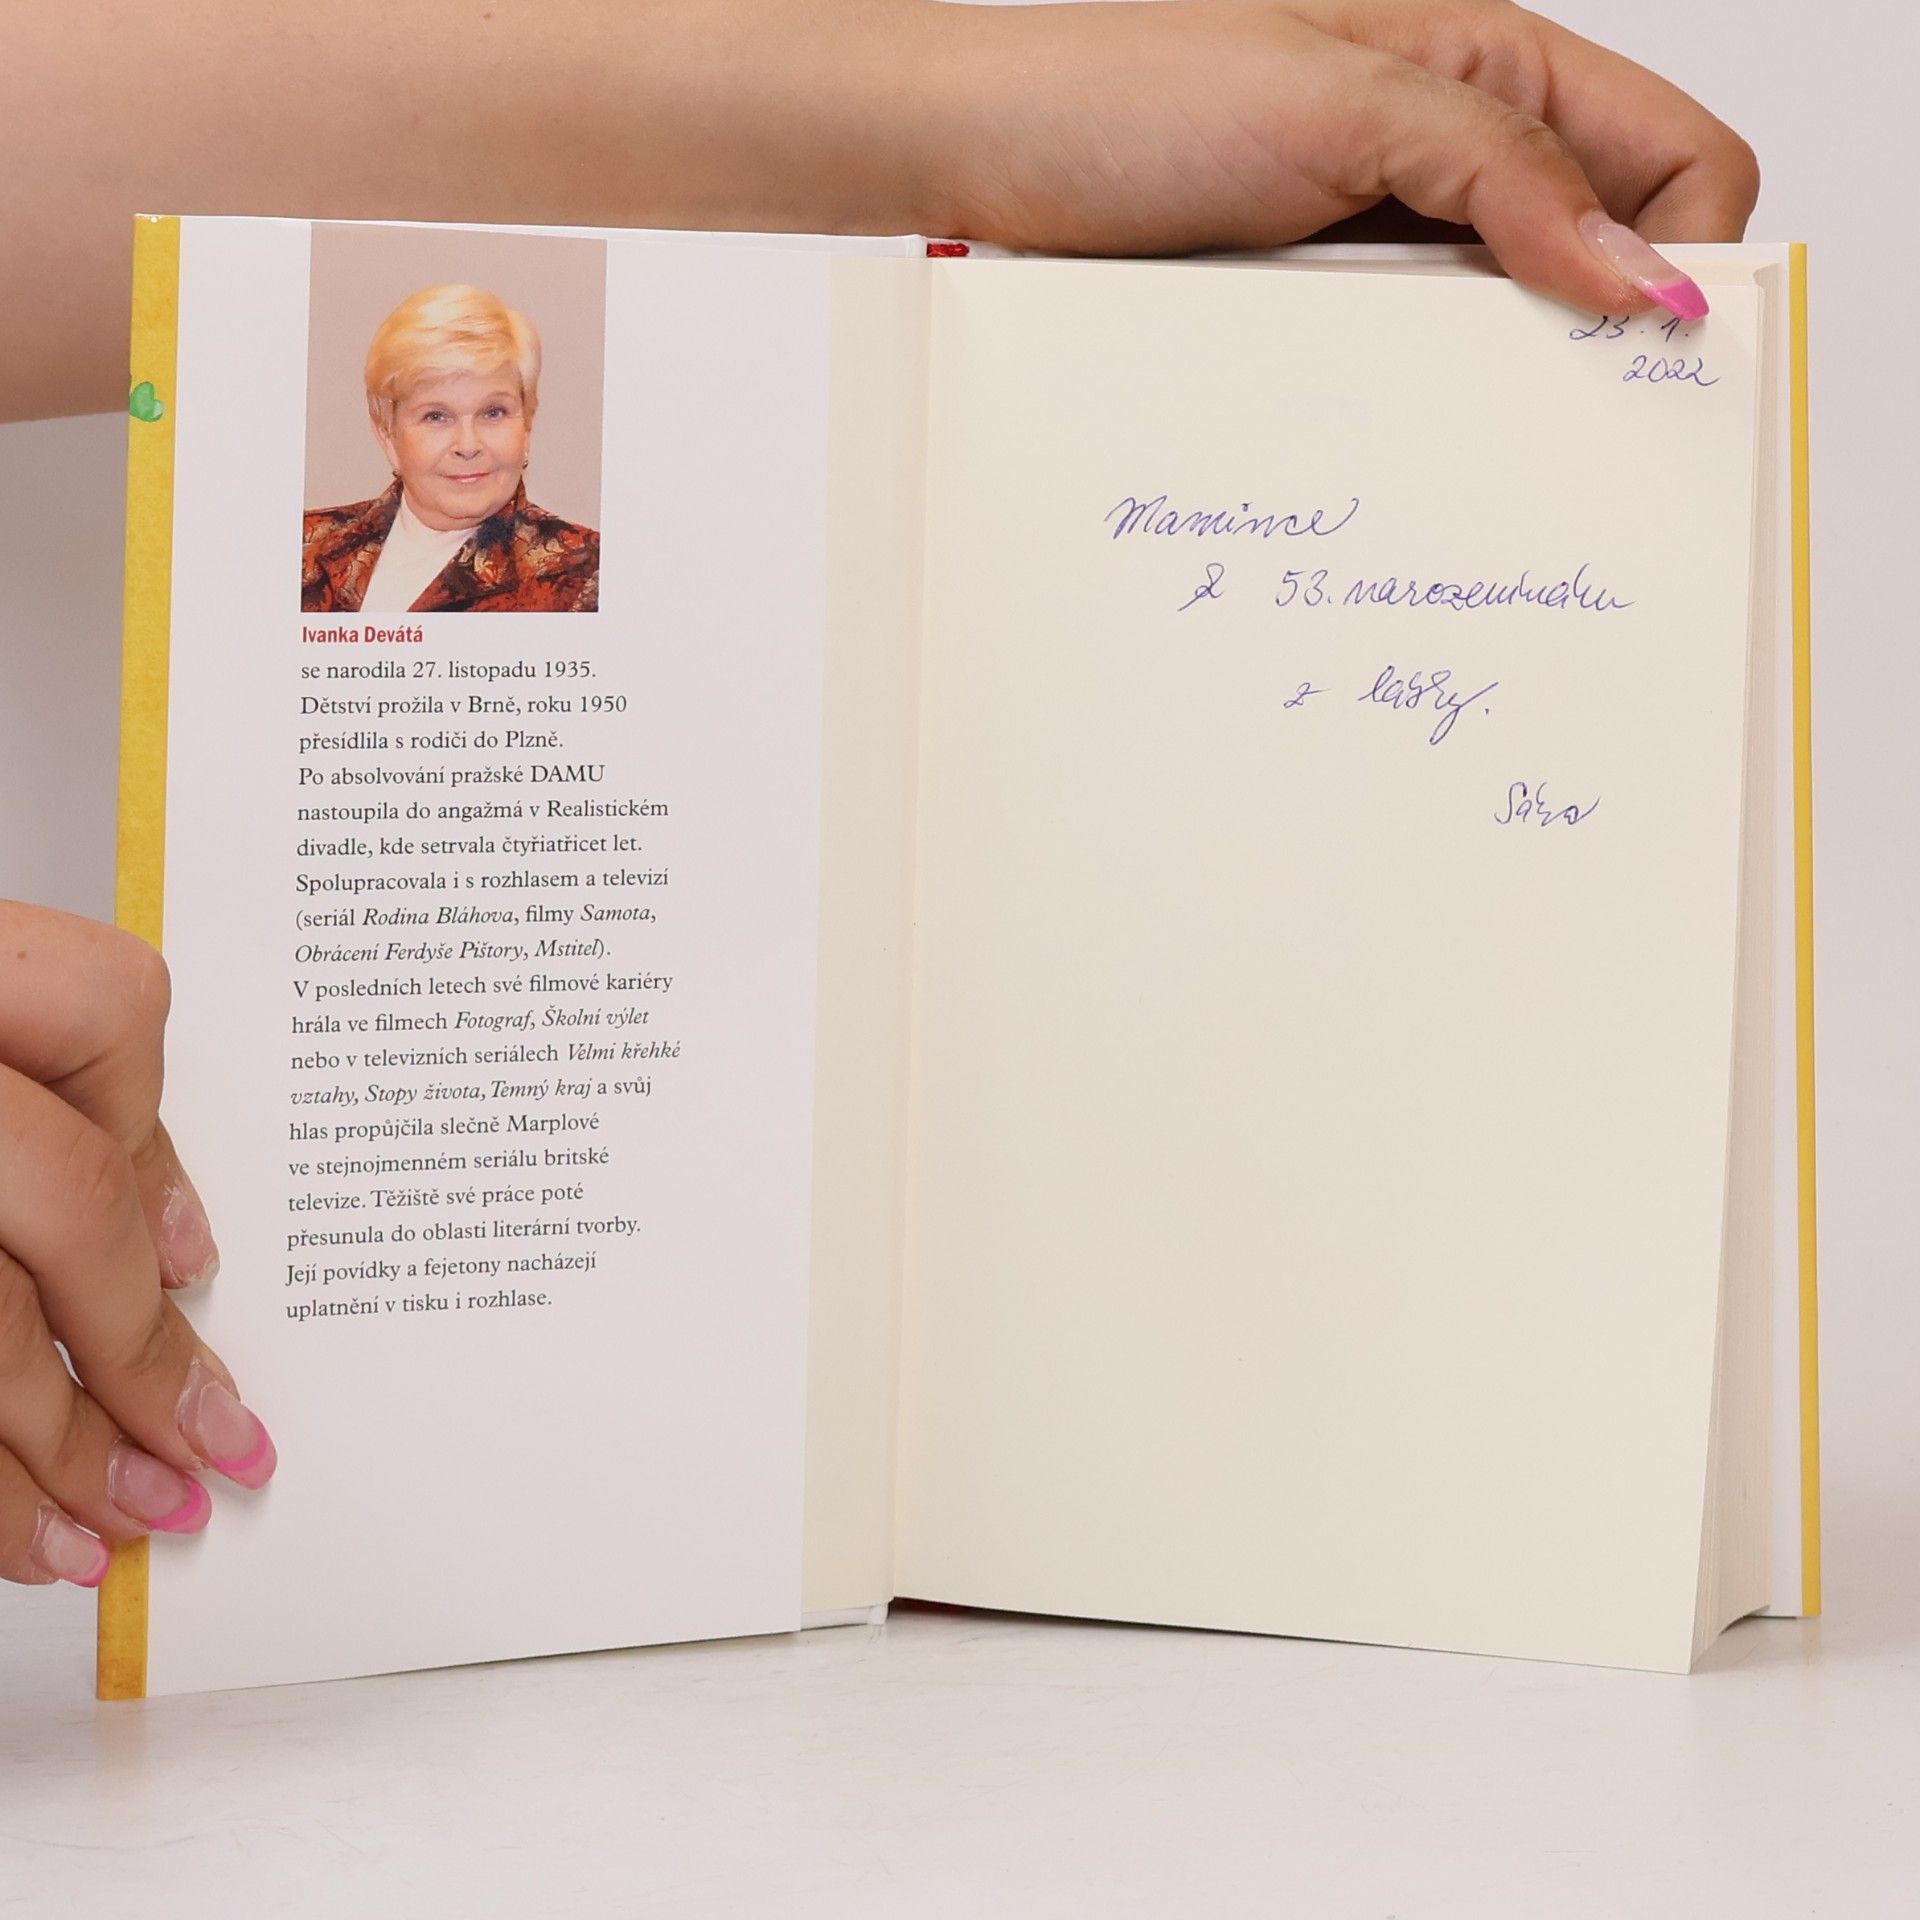 Ivanka Devátá
se narodila 27. listopadu 1935.
Dětství prožila v Brně, roku 1950
přesídlila s rodiči do Plzně.
Po absolvování pražské DAMU
nastoupila do angažmá v Realistickém
divadle, kde setrvala čtyřiatřicet let.
Spolupracovala i s rozhlasem a televizí
(seriál Rodina Bláhova, filmy Samota,
Obrácení Ferdyše Pištory, Mstitel).
V posledních letech své filmové kariéry
hrála ve filmech Fotograf, Školní výlet
nebo v televizních seriálech Velmi křehké
vztahy, Stopy života, Temný kraj a svůj
hlas propůjčila slečně Marplové
ve stejnojmenném seriálu britské
televize. Těžiště své práce poté
přesunula do oblasti literární tvorby.
Její povídky a fejetony nacházejí
uplatnění v tisku i rozhlase.
23. 1.
2022
Mamince
k 53. narozeninám
z lásky.
Sára